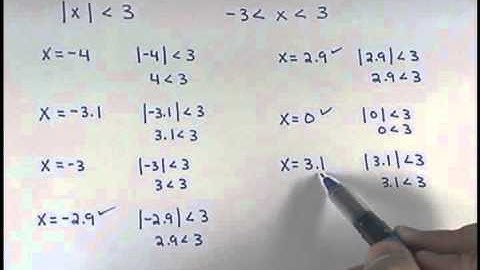 |x| < 3    -3 < x < 3
x = -4    |-4| < 3
4 < 3
x = -3.1    |-3.1| < 3
3.1 < 3
x = -3    |-3| < 3
3 < 3
x = -2.9 ✓    |-2.9| < 3
2.9 < 3
x = 2.9 ✓    |2.9| < 3
2.9 < 3
x = 0 ✓    |0| < 3
0 < 3
x = 3.1    |3.1| < 3
3.1 < 3